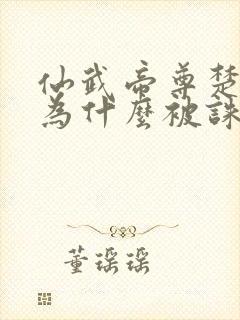 仙武帝尊楚
為什麼被誅
董瑶瑶